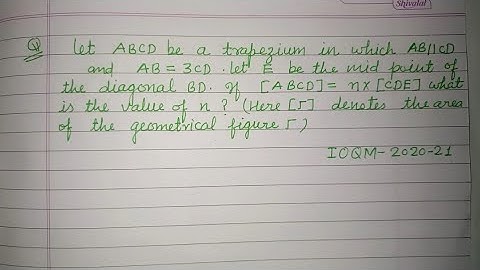 Shivalal
Q Let ABCD be a trapezium in which AB||CD
and AB = 3CD. let E be the mid point of
the diagonal BD. If [ABCD] = n x [CDE] what
is the value of n? (Here [Γ] denotes the area
of the geometrical figure Γ)
IOQM-2020-21